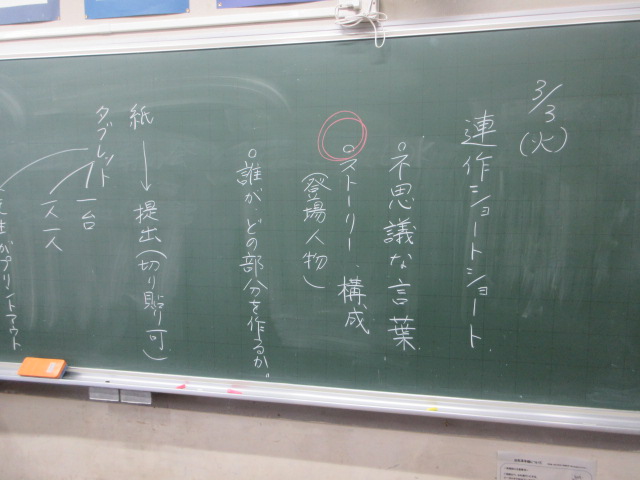 3/3(火)
連作ショートショート
○不思議な言葉
○ストーリー、構成
(登場人物)
○誰が、どの部分を作るか。
紙→提出(切り貼り可)
タブレット
一台
一人一人
がプリントアウト